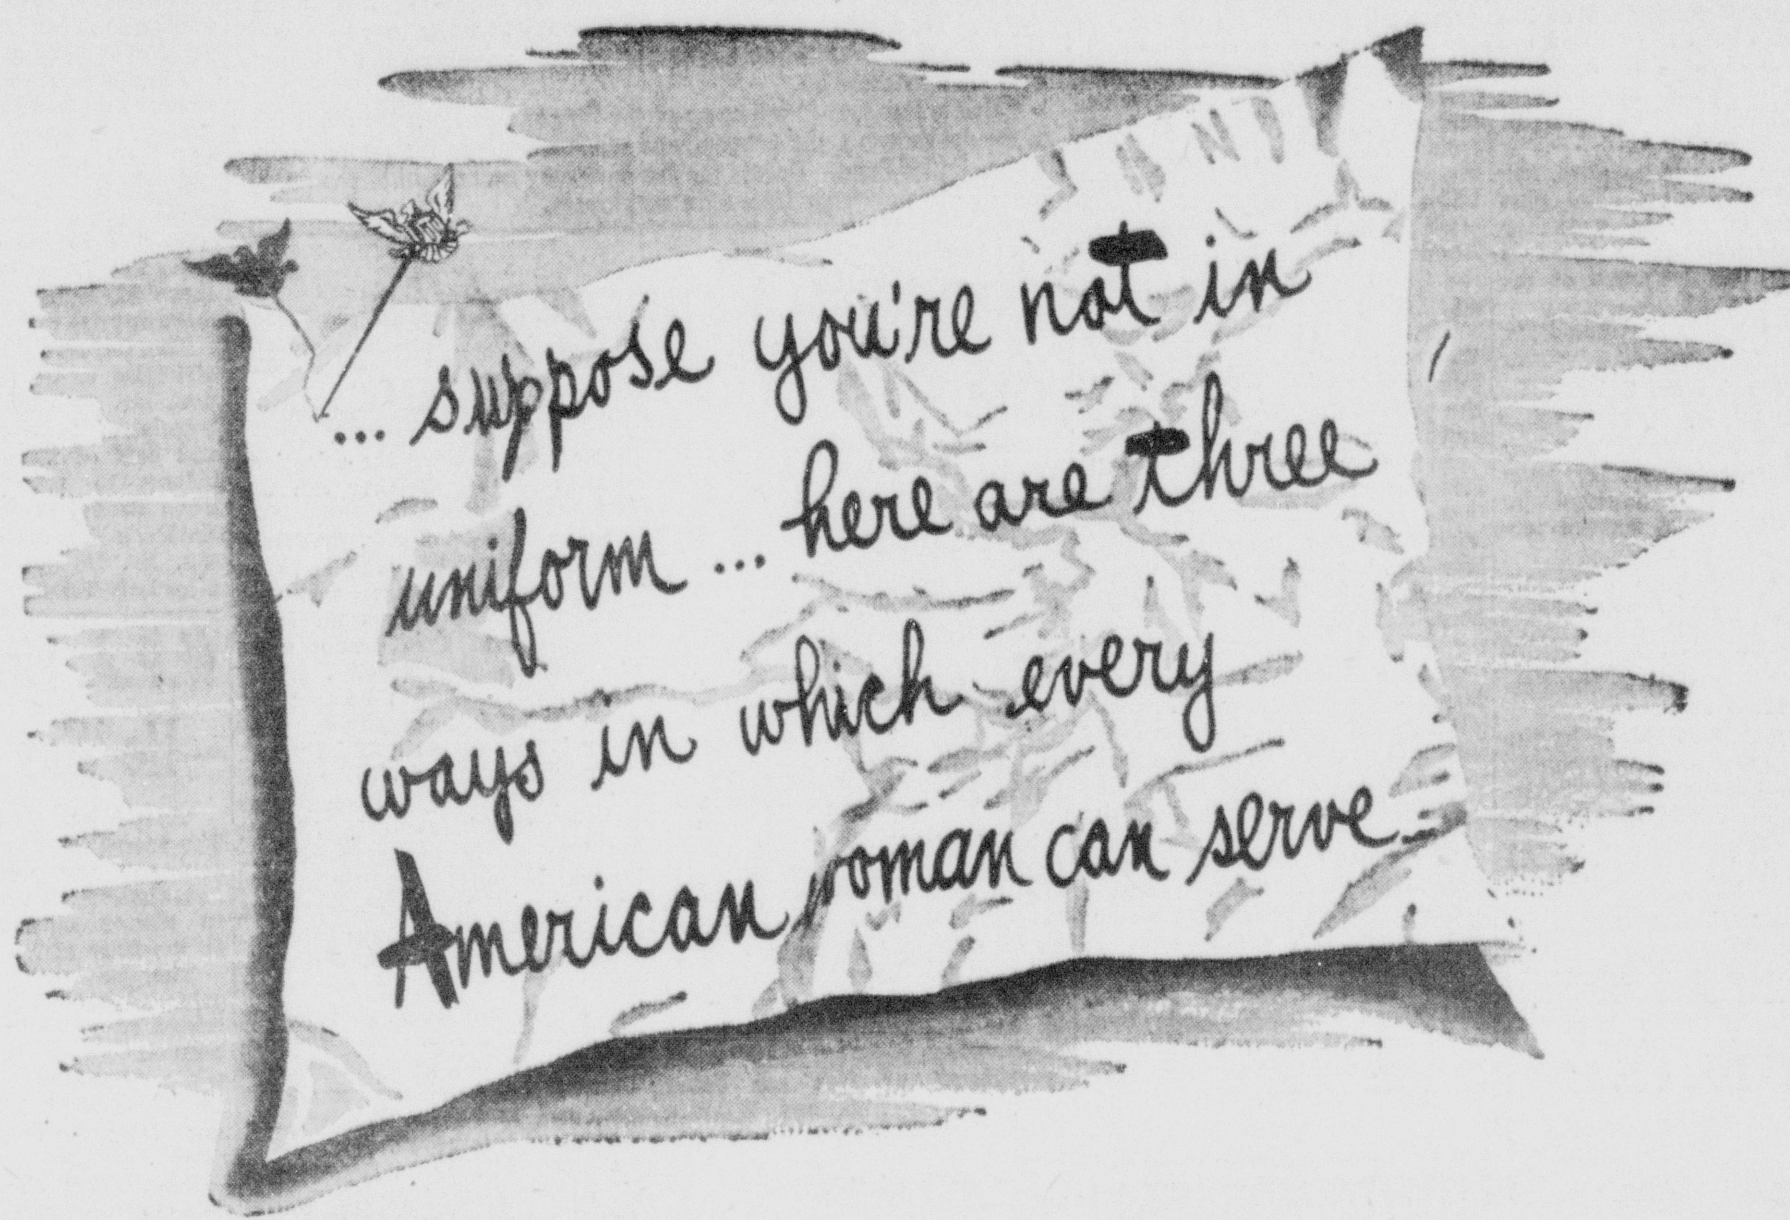 ... suppose you're not in
uniform ... here are three
ways in which every
American woman can serve